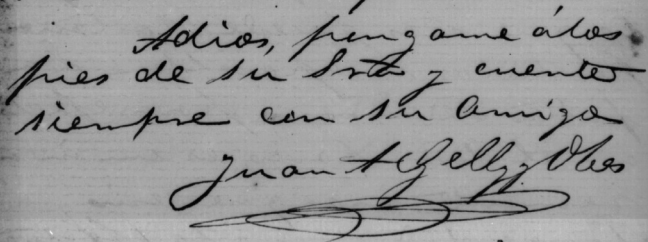 Adios, pongame á los
pies de su Srta y cuente
siempre con su amigo
Juan A Gelly y Obes